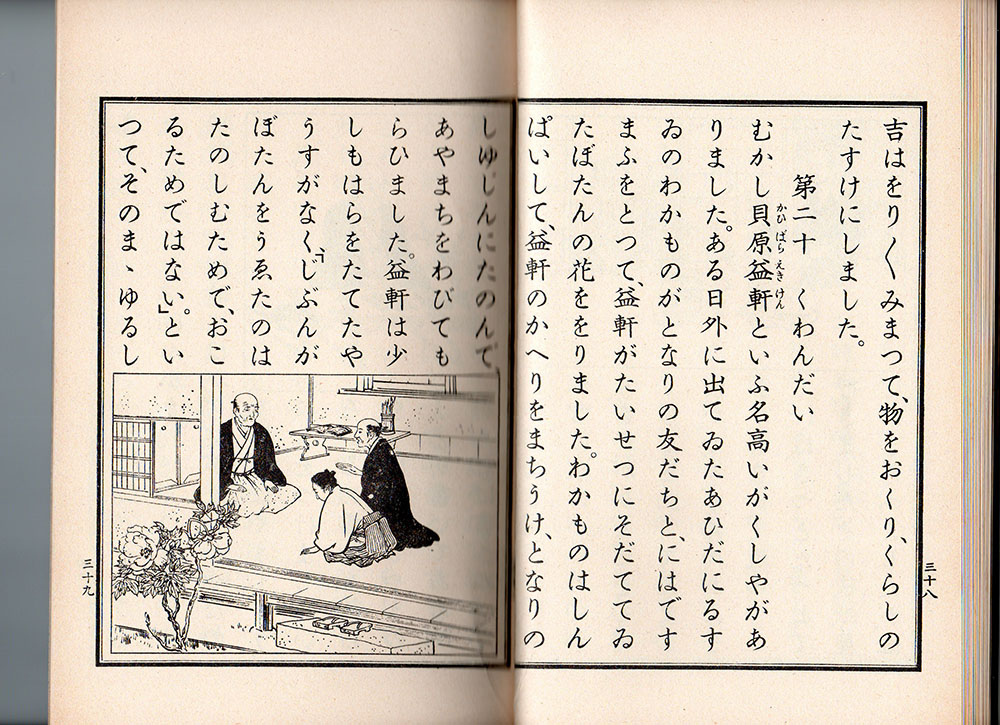 吉はをり〱みまつて、物をおくり、くらしの
たすけにしました。
第二十　くわんだい
むかし貝原益軒といふ名高いがくしやがあ
かひばらえきけん
りました。ある日外に出てゐたあひだにるす
ゐのわかものがとなりの友だちと、にはです
まふをとつて、益軒がたいせつにそだててゐ
たぼたんの花ををりました。わかものはしん
ぱいして、益軒のかへりをまちうけ、となりの
三十八
しゆじんにたのんで、
あやまちをわびても
らひました。益軒は少
しもはらをたてたや
うすがなく、「じぶんが
ぼたんをうゑたのは
たのしむためで、おこ
るためではない。」とい
つて、そのまゝゆるし
三十九